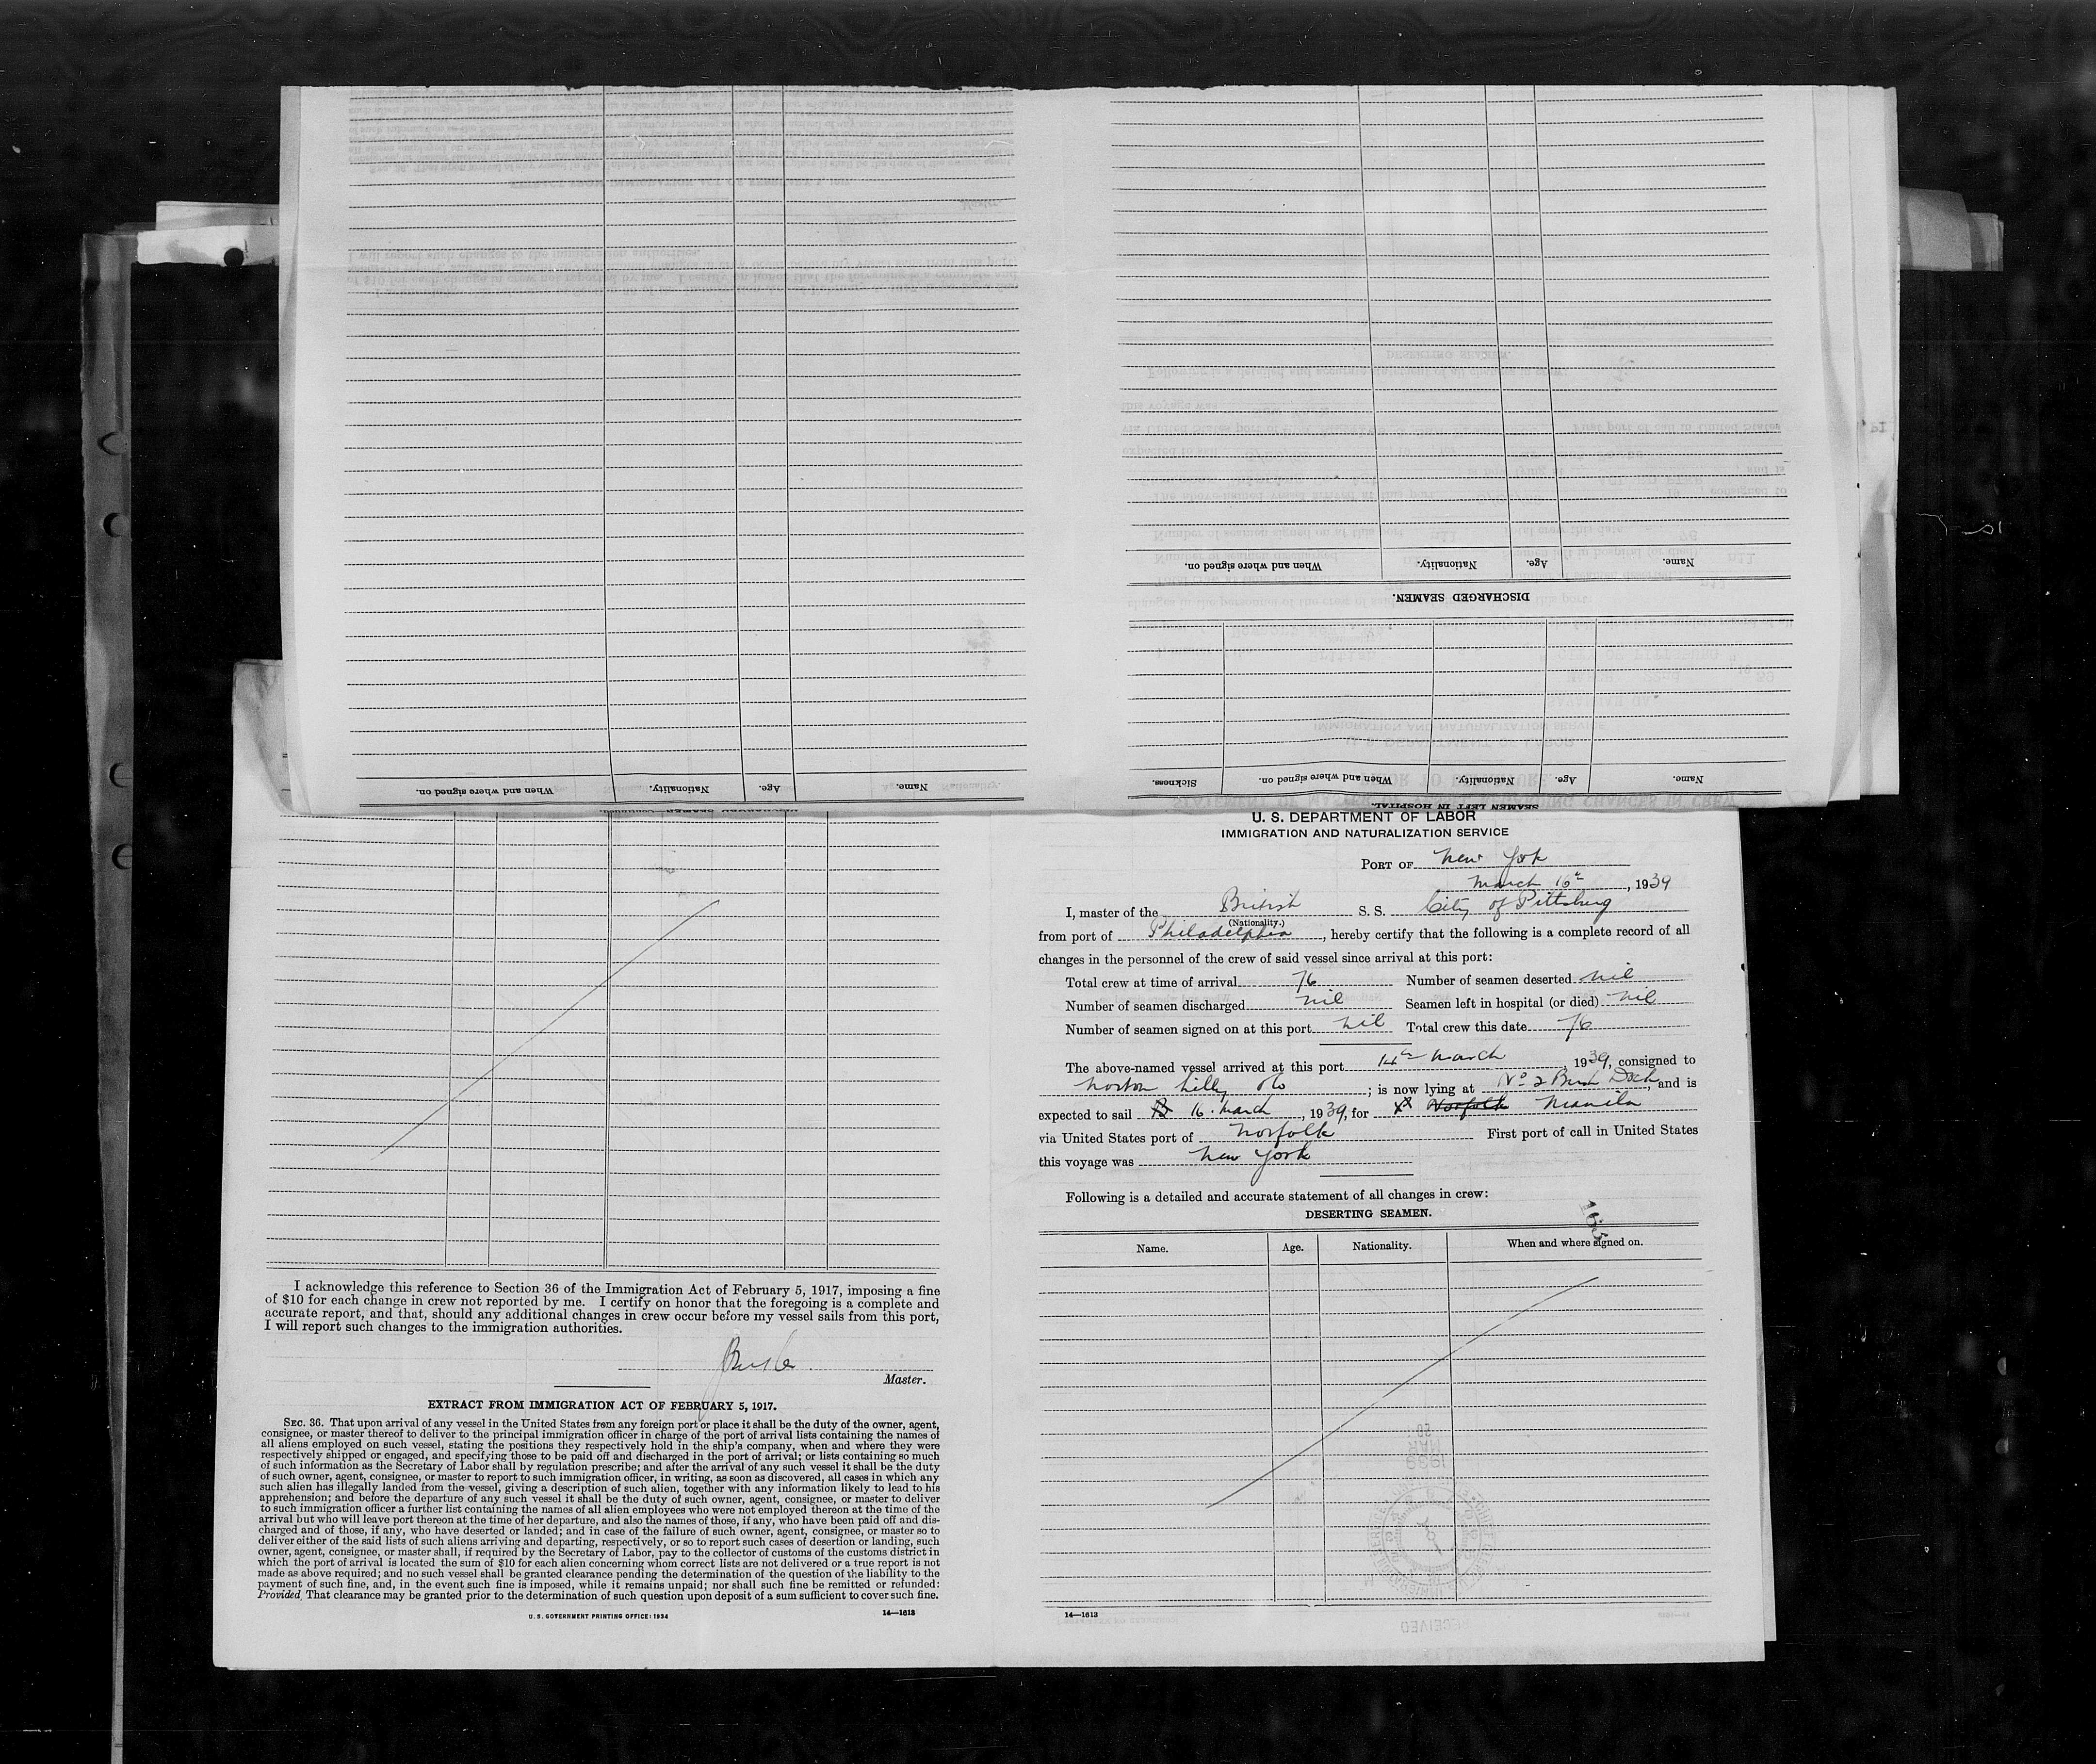 Name. Age. Nationality. When and where signed on.
SEAMEN LEFT IN HOSPITAL.
Name. Age. Nationality. When and where signed on. Sickness.
DISCHARGED SEAMEN.
Name. Age. Nationality. When and where signed on.
U. S. DEPARTMENT OF LABOR
IMMIGRATION AND NATURALIZATION SERVICE
PORT OF New York
March 16th, 1939
I, master of the British S. S. City of Pittsburg
(Nationality.)
from port of Philadelphia, hereby certify that the following is a complete record of all
changes in the personnel of the crew of said vessel since arrival at this port:
Total crew at time of arrival 76 Number of seamen deserted nil
Number of seamen discharged nil Seamen left in hospital (or died) nil
Number of seamen signed on at this port nil Total crew this date 76
The above-named vessel arrived at this port 14th March, 1939, consigned to
Norton Lilly Co; is now lying at No 2 Bush Dock, and is
expected to sail 16. March, 1939, for Norfolk Manila
via United States port of Norfolk First port of call in United States
this voyage was New York
Following is a detailed and accurate statement of all changes in crew:
DESERTING SEAMEN.
Name. Age. Nationality. When and where signed on.
14—1613
RECEIVED
I acknowledge this reference to Section 36 of the Immigration Act of February 5, 1917, imposing a fine
of $10 for each change in crew not reported by me. I certify on honor that the foregoing is a complete and
accurate report, and that, should any additional changes in crew occur before my vessel sails from this port,
I will report such changes to the immigration authorities.
Master.
EXTRACT FROM IMMIGRATION ACT OF FEBRUARY 5, 1917.
SEC. 36. That upon arrival of any vessel in the United States from any foreign port or place it shall be the duty of the owner, agent,
consignee, or master thereof to deliver to the principal immigration officer in charge of the port of arrival lists containing the names of
all aliens employed on such vessel, stating the positions they respectively hold in the ship's company, when and where they were
respectively shipped or engaged, and specifying those to be paid off and discharged in the port of arrival; or lists containing so much
of such information as the Secretary of Labor shall by regulation prescribe; and after the arrival of any such vessel it shall be the duty
of such owner, agent, consignee, or master to report to such immigration officer, in writing, as soon as discovered, all cases in which any
such alien has illegally landed from the vessel, giving a description of such alien, together with any information likely to lead to his
apprehension; and before the departure of any such vessel it shall be the duty of such owner, agent, consignee, or master to deliver
to such immigration officer a further list containing the names of all alien employees who were not employed thereon at the time of the
arrival but who will leave port thereon at the time of her departure, and also the names of those, if any, who have been paid off and dis-
charged and of those, if any, who have deserted or landed; and in case of the failure of such owner, agent, consignee, or master so to
deliver either of the said lists of such aliens arriving and departing, respectively, or so to report such cases of desertion or landing, such
owner, agent, consignee, or master shall, if required by the Secretary of Labor, pay to the collector of customs of the customs district in
which the port of arrival is located the sum of $10 for each alien concerning whom correct lists are not delivered or a true report is not
made as above required; and no such vessel shall be granted clearance pending the determination of the question of the liability to the
payment of such fine, and, in the event such fine is imposed, while it remains unpaid; nor shall such fine be remitted or refunded:
Provided, That clearance may be granted prior to the determination of such question upon deposit of a sum sufficient to cover such fine.
U. S. GOVERNMENT PRINTING OFFICE: 1934 14—1613